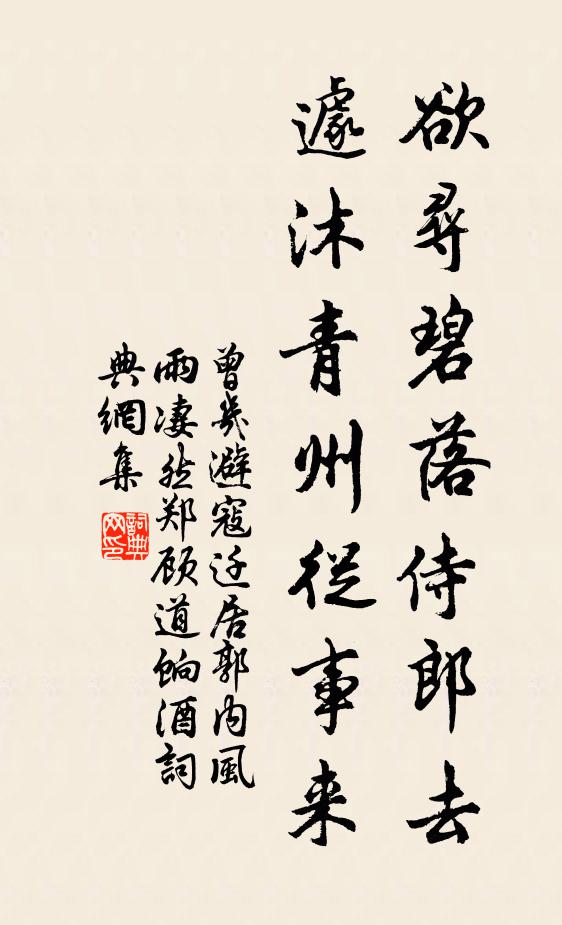 欲尋碧落侍郎去
遽沐青州從事来
曾幾避寇迁居郭内風
雨凄然郑顾道饷酒詞
典網集
詞典網印